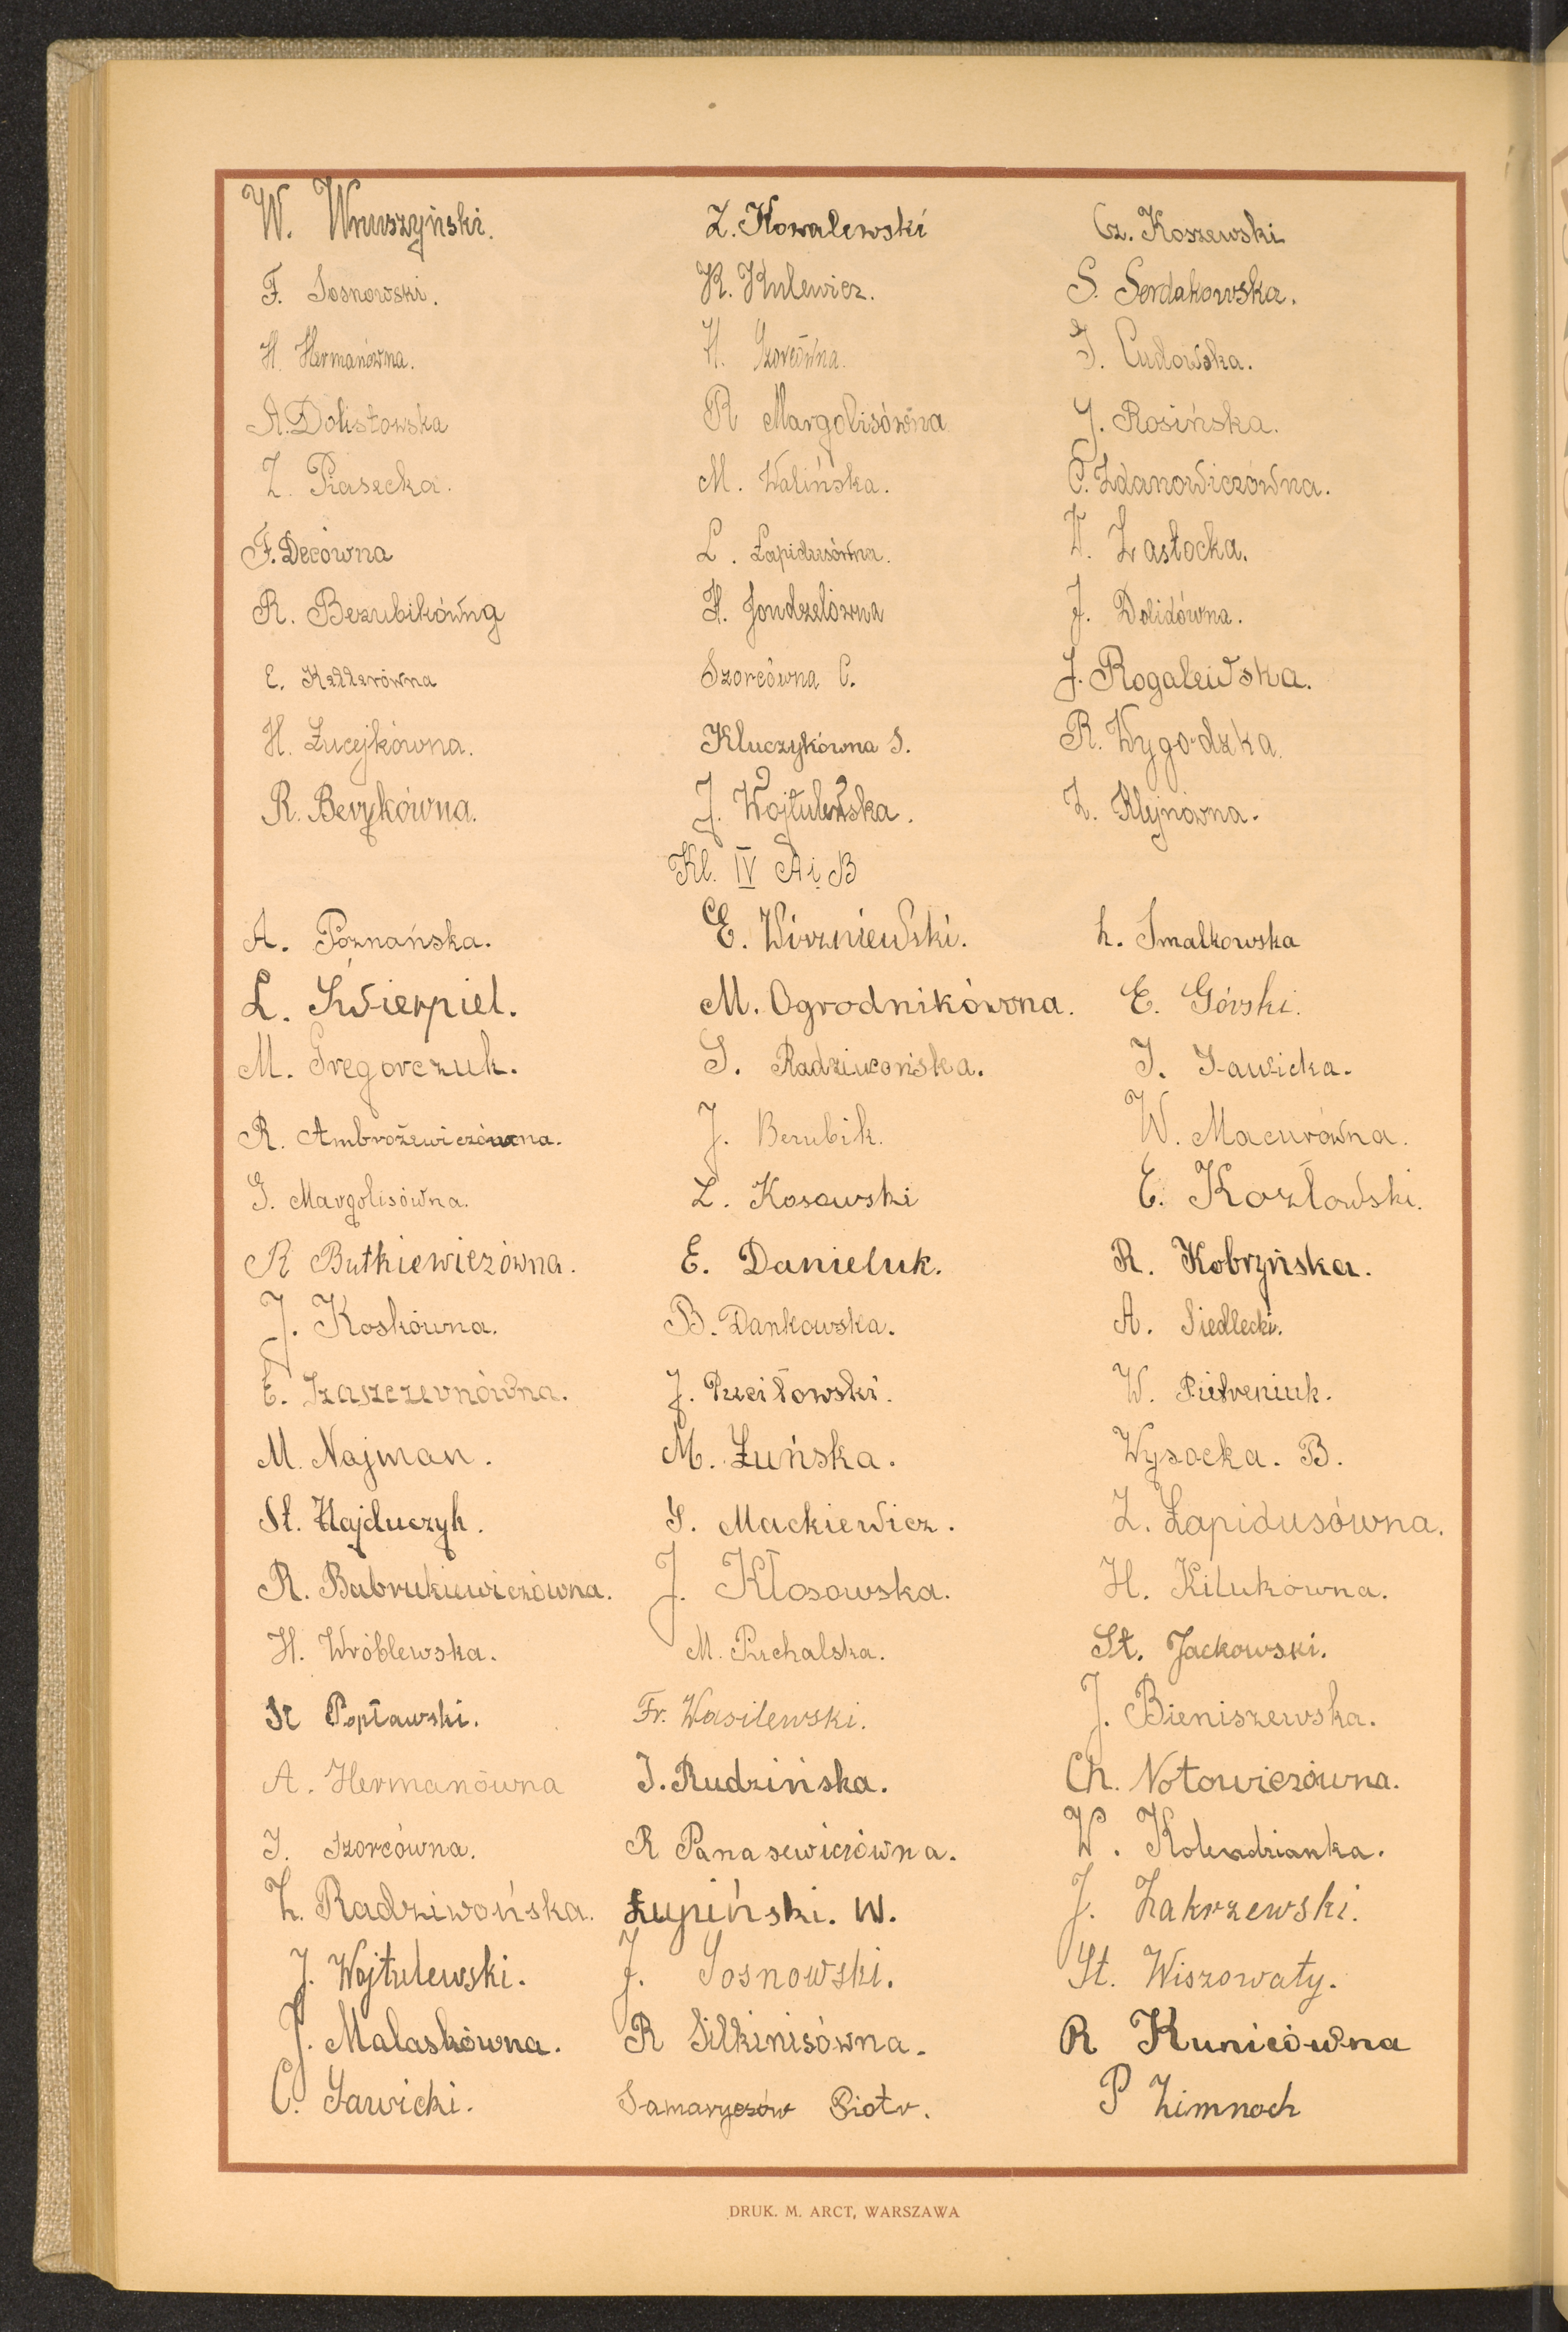 W. Wnuszyński. Z. Kowalewski Cz. Koszewski
F. Sosnowski. K. Kulewicz. S. Serdakowska.
H. Hermanówna. H. Szorcówna. J. Cudowska.
A. Dolistowska R Margolisówna J. Rosińska.
Z. Piasecka. M. Walińska. C. Zdanowiczówna.
F. Decówna L. Łapidusówna. W. Zasłocka.
R. Bezubikówna H. Jondzelówna J. Dolidówna.
E. Kellerówna Szorcówna C. J. Rogalewska.
H. Łucejkówna. Kluczykówna S. R. Wygodzka.
R. Berykówna. J. Wojtulewska. Z. Klejnówna.
Kl. IV A i B
A. Poznańska. E. Wiszniewski. L. Smalkowska
L. Świerpiel. M. Ogrodnikówna. E. Górski.
M. Gregorczuk. S. Radziwońska. J. Sawicka.
R. Ambrożewiczówna. J. Bezubik. W. Macurówna.
G. Margolisówna. Z. Kosowski E. Kozłowski.
R Butkiewiczówna. E. Danieluk. R. Kobryńska.
J. Koskówna. B. Dankowska. A. Siedlecki.
E. Szaszczewnówna. J. Puciłowski. W. Pietreniuk.
M. Najman. M. Łuńska. Wysocka. B.
St. Hajduczyk. S. Mackiewicz. Z. Łapidusówna.
R. Babrukiewiczówna. J. Kłosowska. H. Kilukówna.
H. Wróblewska. M. Puchalska. St. Jackowski.
St Popławski. Fr. Wasilewski. J. Bieniszewska.
A. Hermanówna J. Rudzińska. Ch. Notowiczówna.
J. Szorcówna. R Panasewiczówna. W. Kolendzianka.
Z. Radziwońska. Łupiński. W. J. Zakrzewski.
J. Wojtulewski. J. Sosnowski. St. Wiszowaty.
J. Malaskówna. R Silkinisówna. R Kunicówna
C. Sawicki. Samaryczów Piotr. P Zimnoch
DRUK. M. ARCT, WARSZAWA